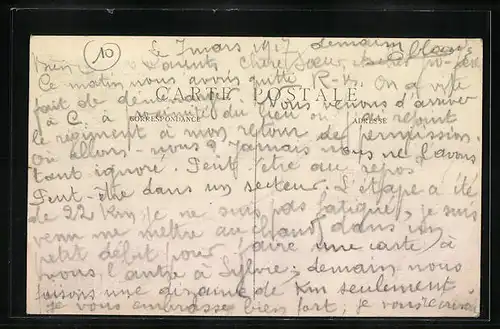 10
le 7 mars 1917 demain
Bien chers Parents, chère Soeur,
Ce matin nous avons quitté R. On a vite
fait de déménager. Nous venons d'arriver
CARTE POSTALE
à C. à du lieu où j'ai rejoint
CORRESPONDANCE ADRESSE
le régiment à mon retour de permission.
Où allons-nous? Jamais nous ne l'avons
tant ignoré. Peut-être au repos
Peut-être dans un secteur. L'étape a été
de 22 km je ne suis pas fatigué, je suis
venu me mettre au chaud dans un
petit débit pour faire une carte à
vous l'autre à Sylvie; demain nous
faisons une dizaine de km seulement.
je vous embrasse bien fort; je vous